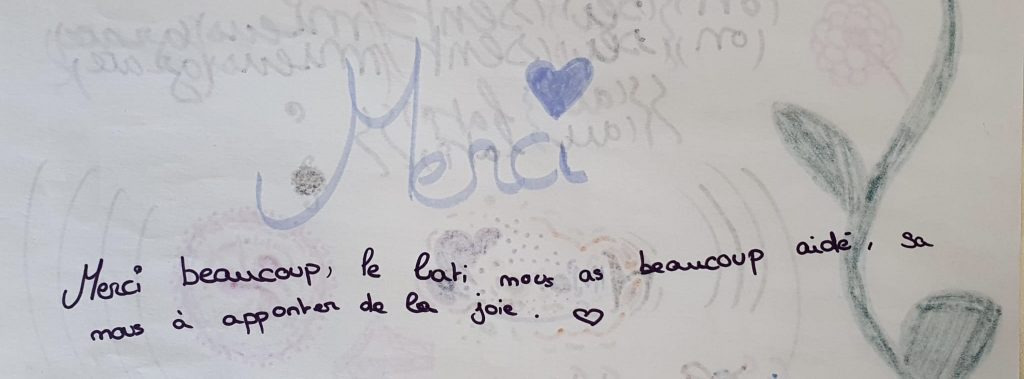 Merci
Merci beaucoup, le lati nous as beaucoup aidé, sa
nous à apporter de la joie.